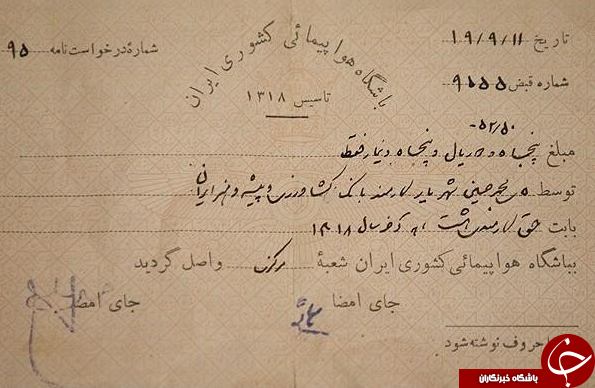 باشگاه هواپیمائی کشوری ایران
تاسیس ۱۳۱۸
تاریخ ۱۹/۹/۱۱
شمارهٔ درخواست‌نامه ۹۵
شماره قبض ۹۵۵۵
۵۲/۵۰
مبلغ پنجاه و دو ریال و پنجاه دینار فقط
توسط محمدحسین شهریار کارمند بانک کشاورزی و پیشه و هنر ایران
بابت حق کارمندی هشت آخر سال ۱۳۱۸
بباشگاه هواپیمائی کشوری ایران شعبهٔ مرکزی واصل گردید
جای امضا جای امضا
حروف نوشته شود
باشگاه خبرنگاران